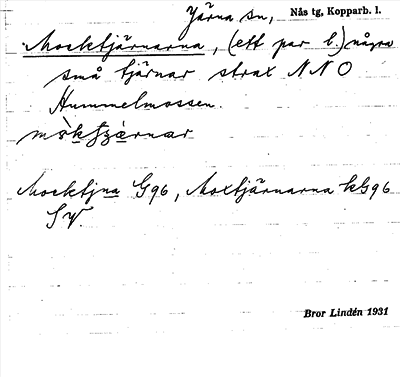 Järna sn, Nås tg, Kopparb. l.
Mocktjärnarna, (ett par l.) några
små tjärnar strax NNO
Hummelmossen.
Mocktjna G96, Moxtjärnarna kG96
Bror Lindén 1931